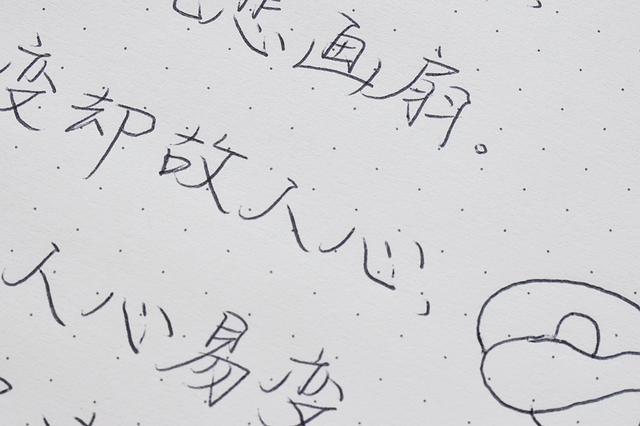 悲画扇。
变却故人心,
人心易变